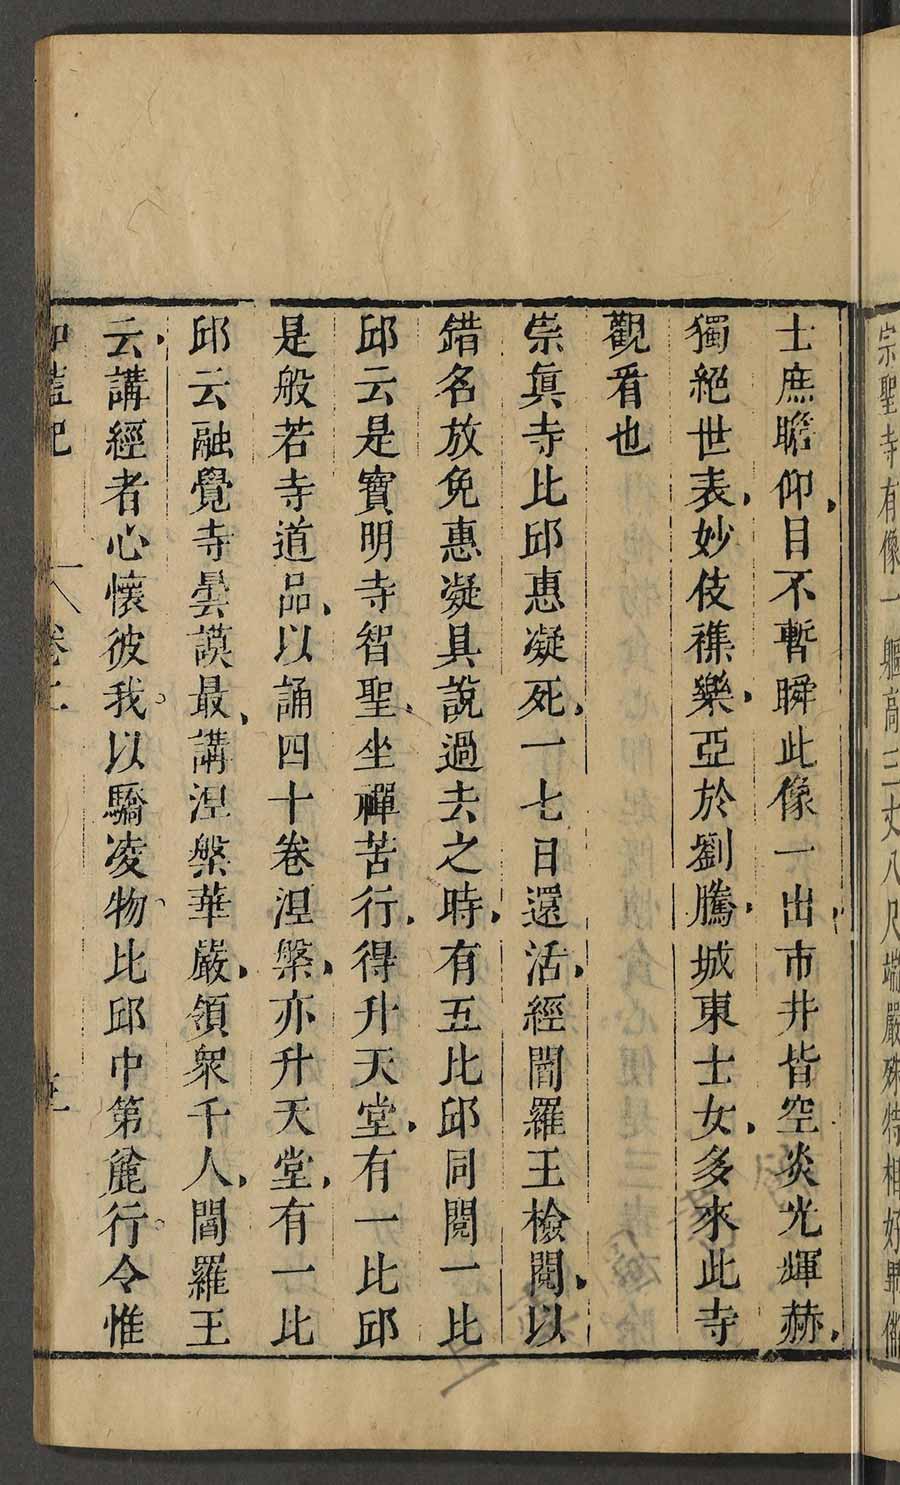 宗聖寺有像一軀高三丈八尺端嚴殊特相好畢備
士庶瞻仰目不暫瞬此像一出市井皆空炎光輝赫
獨絕世表妙伎襍樂亞於劉騰城東士女多來此寺
觀看也
崇眞寺比邱惠凝死一七日還活經閻羅王檢閱以
錯名放免惠凝具說過去之時有五比邱同閱一比
邱云是寶明寺智聖坐禪苦行得升天堂有一比邱
是般若寺道品以誦四十卷涅槃亦升天堂有一比
邱云融覺寺曇謨最講涅槃華嚴領衆千人閻羅王
云講經者心懷彼我以驕凌物比邱中第麄行今惟
伽藍記 卷二